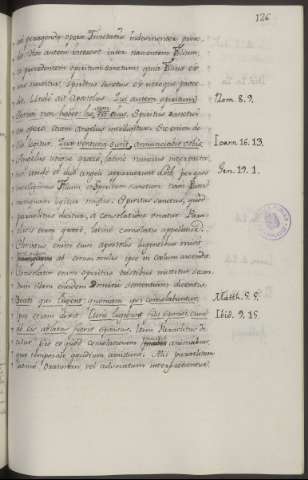 126
ad peragenda opera Trinitatis indeterminata pone-
ba. Hoc autem interest inter nascentem Filium,
et procedentem Spiritum sanctum quia Filius ex
uno nascitur, Spiritus sanctus ex utroque proce-
dit. Unde ait Apostolus: Qui autem Spiritum
Christi non habet hic non est eius. Spiritus sanctus
ex opere etiam angelus intelligitur. De eo enim di-
ctum est: Quae ventura sunt, annunciabit vobis.
Angelus utique graece, latine nuncius interpreta-
tur. unde et duo angeli apparuerunt Loth, per quos
intelligimus Filium et Spiritum sanctum nam Patrem
nunquam legitur missus. Spiritus sanctus, quod
paraclitus dicitur, a consolatione vocatur. Para-
clisis enim graece, latine consolatio appellatur.
Christus enim eum Apostolis lugentibus misit,
ab eorum oculis ipse in caelum ascendit.
Consolator enim tristibus mittitur secun-
dum illam eiusdem Domini sententiam dicentis:
Beati qui lugent quoniam ipsi consolabuntur,
ipse etiam dixit: Tunc lugebunt filii sponsi cum
ab eis ablatus fuerit sponsus. Item Paracletus di-
citur pro eo quod consolationem animabus,
quae temporale gaudium amittunt. Alii paracletum
latine, oratorem vel advocatum interpretantur.
Rom. 8. 9.
Ioann. 16. 13.
Gen. 19. 1.
Matth. 5. 5.
Ibid. 9. 15.